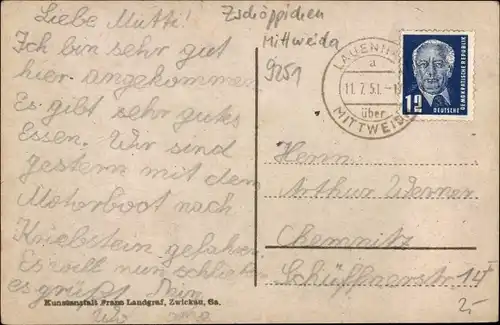 Liebe Mutti!
Ich bin sehr gut
hier angekommen.
Es gibt sehr gutes
Essen. Wir sind
gestern mit dem
Motorboot nach
Kriebstein gefahren
Es will nun schließen
es grüßt Dein
Kunstanstalt Franz Landgraf, Zwickau, Sa.
Zschöppichen
Mittweida
9251
a
11.7.51.-1
über
MITTWEID
DEUTSCHE
DEMOKRATISCHE REPUBLIK
12
Herrn
Arthur Werner
Chemnitz
Schüffnerstr 14 I
2,-